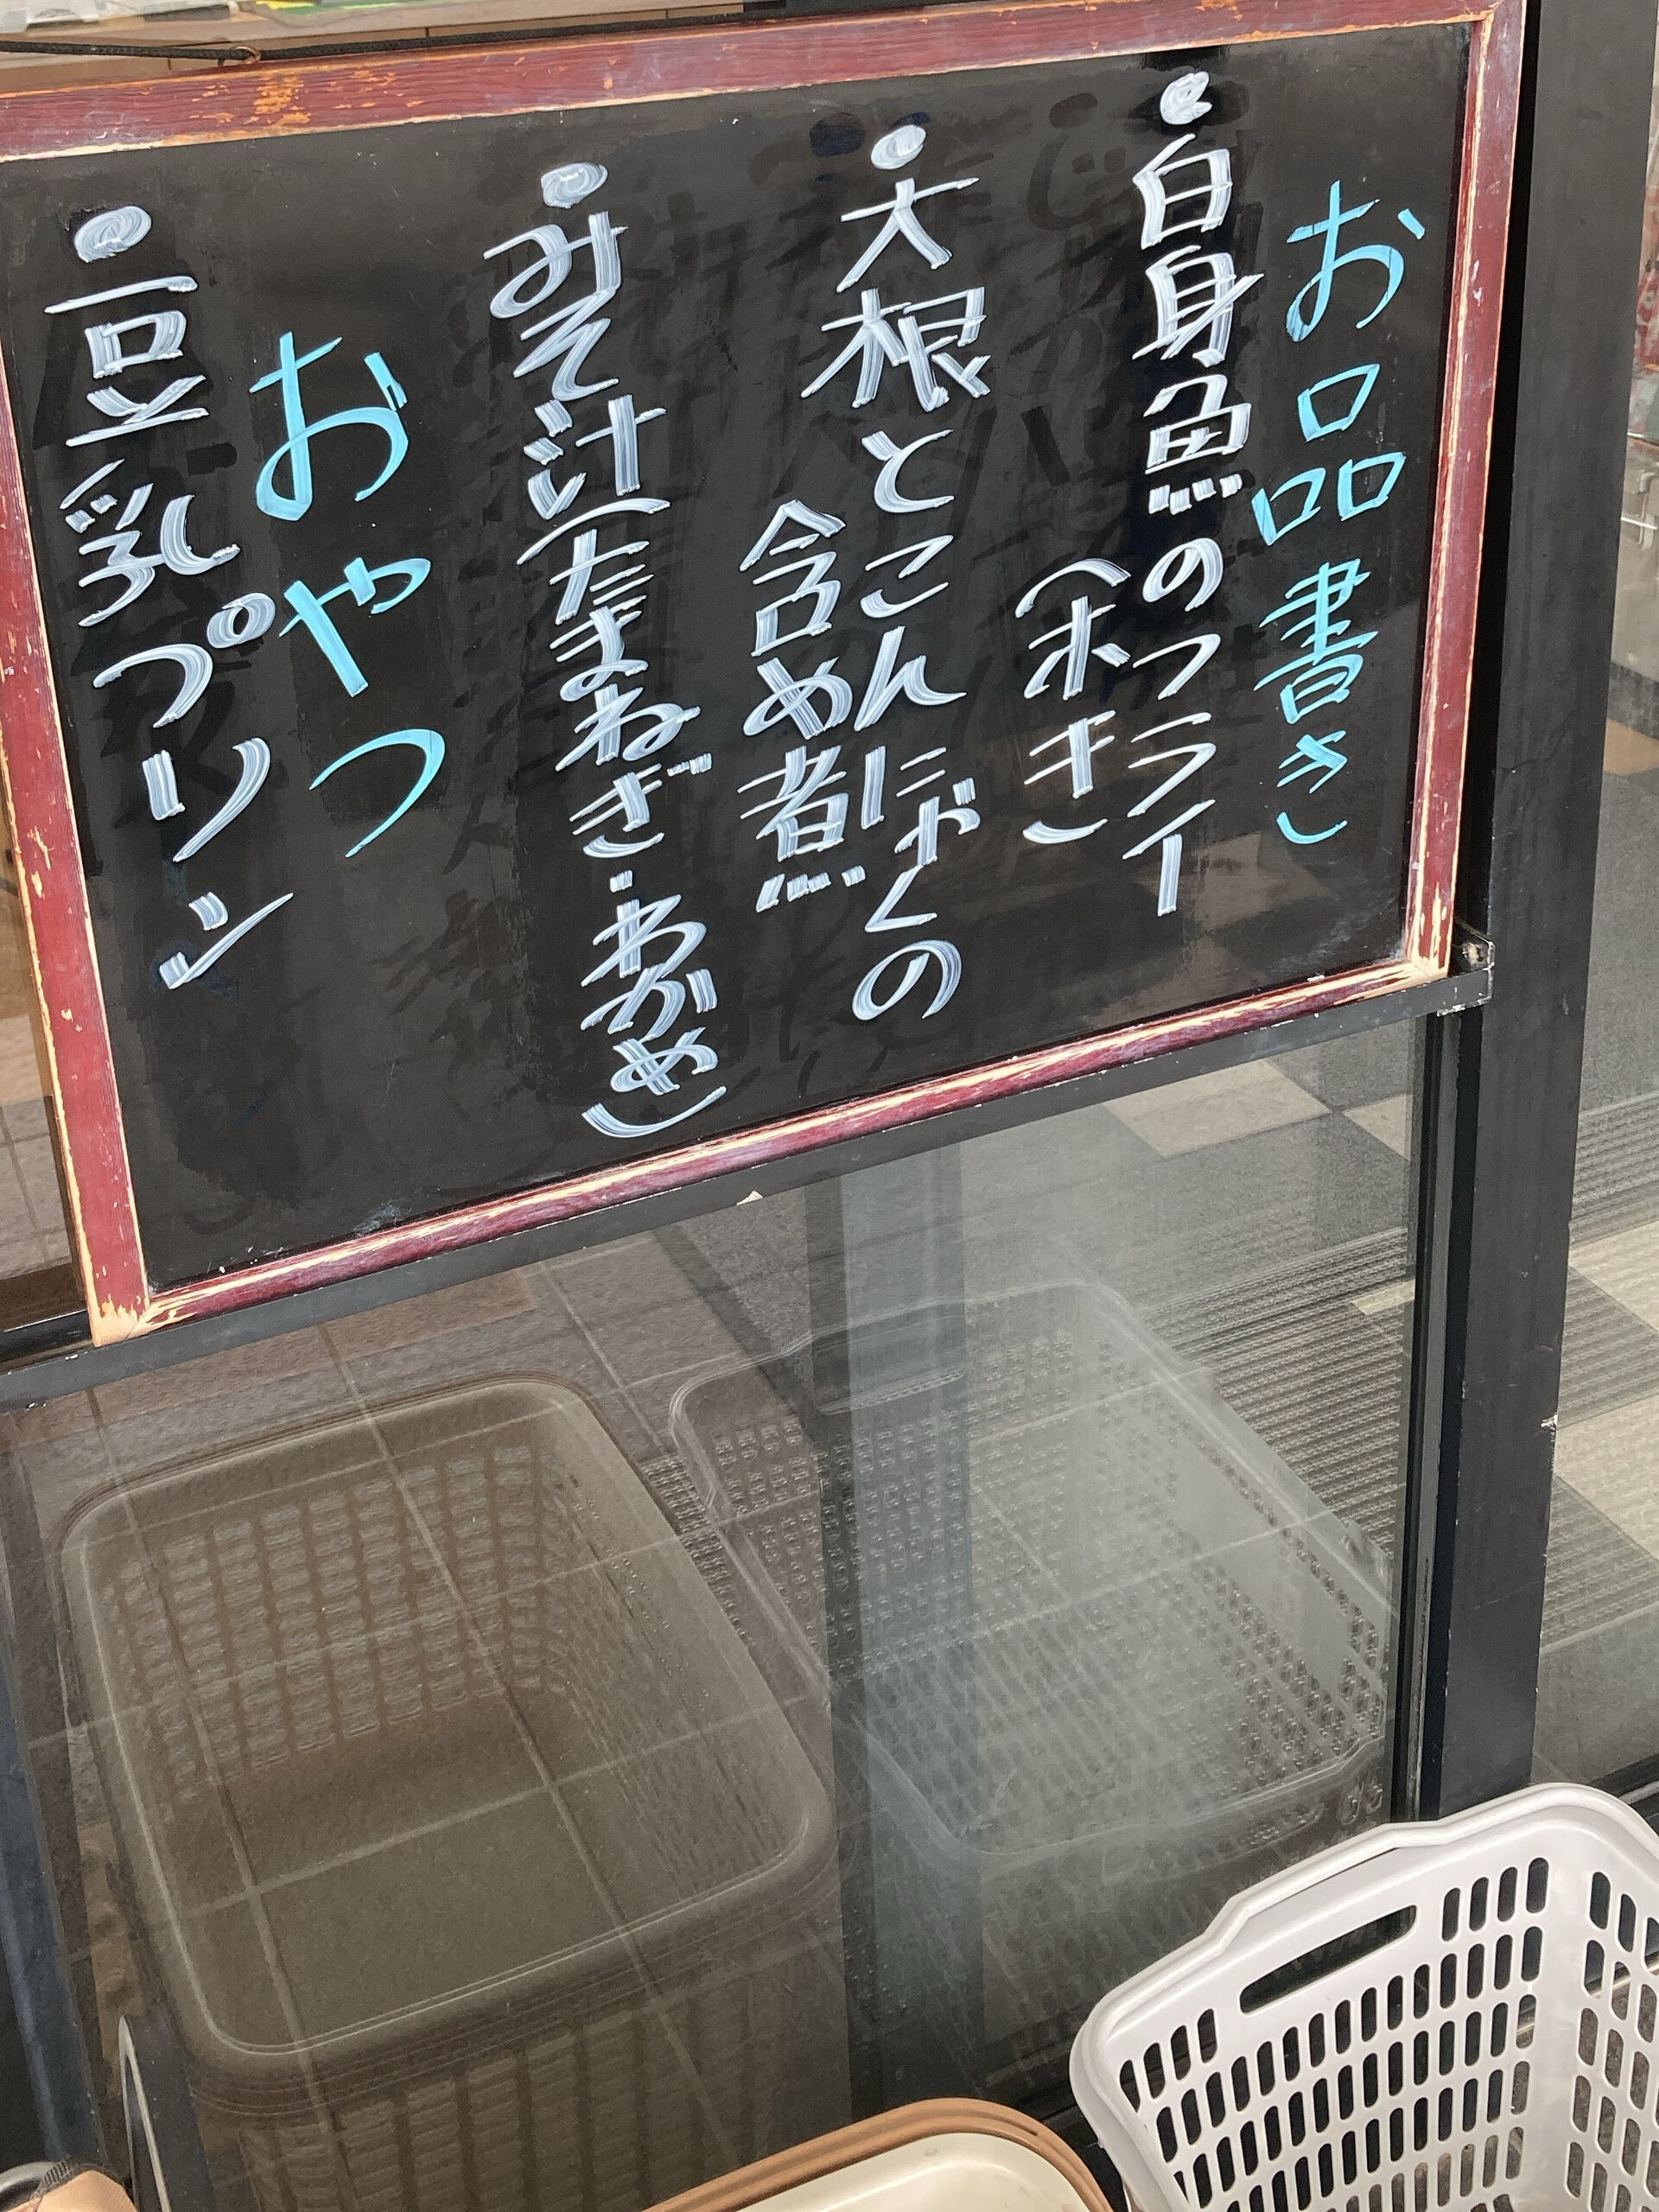 お品書き
・白身魚のフライ
（ホキ）
・大根とこんにゃくの
含め煮
・みそ汁（たまねぎ・わかめ）
おやつ
・豆乳プリン